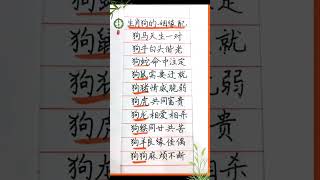 生肖狗的姻缘配
狗马天生一对
狗手白头偕老
狗蛇命中注定
狗鼠需要迁就
狗猪情感脆弱
狗虎共同富贵
狗龙相爱相杀
狗猴同甘共苦
狗羊良缘佳偶
狗狗麻烦不断